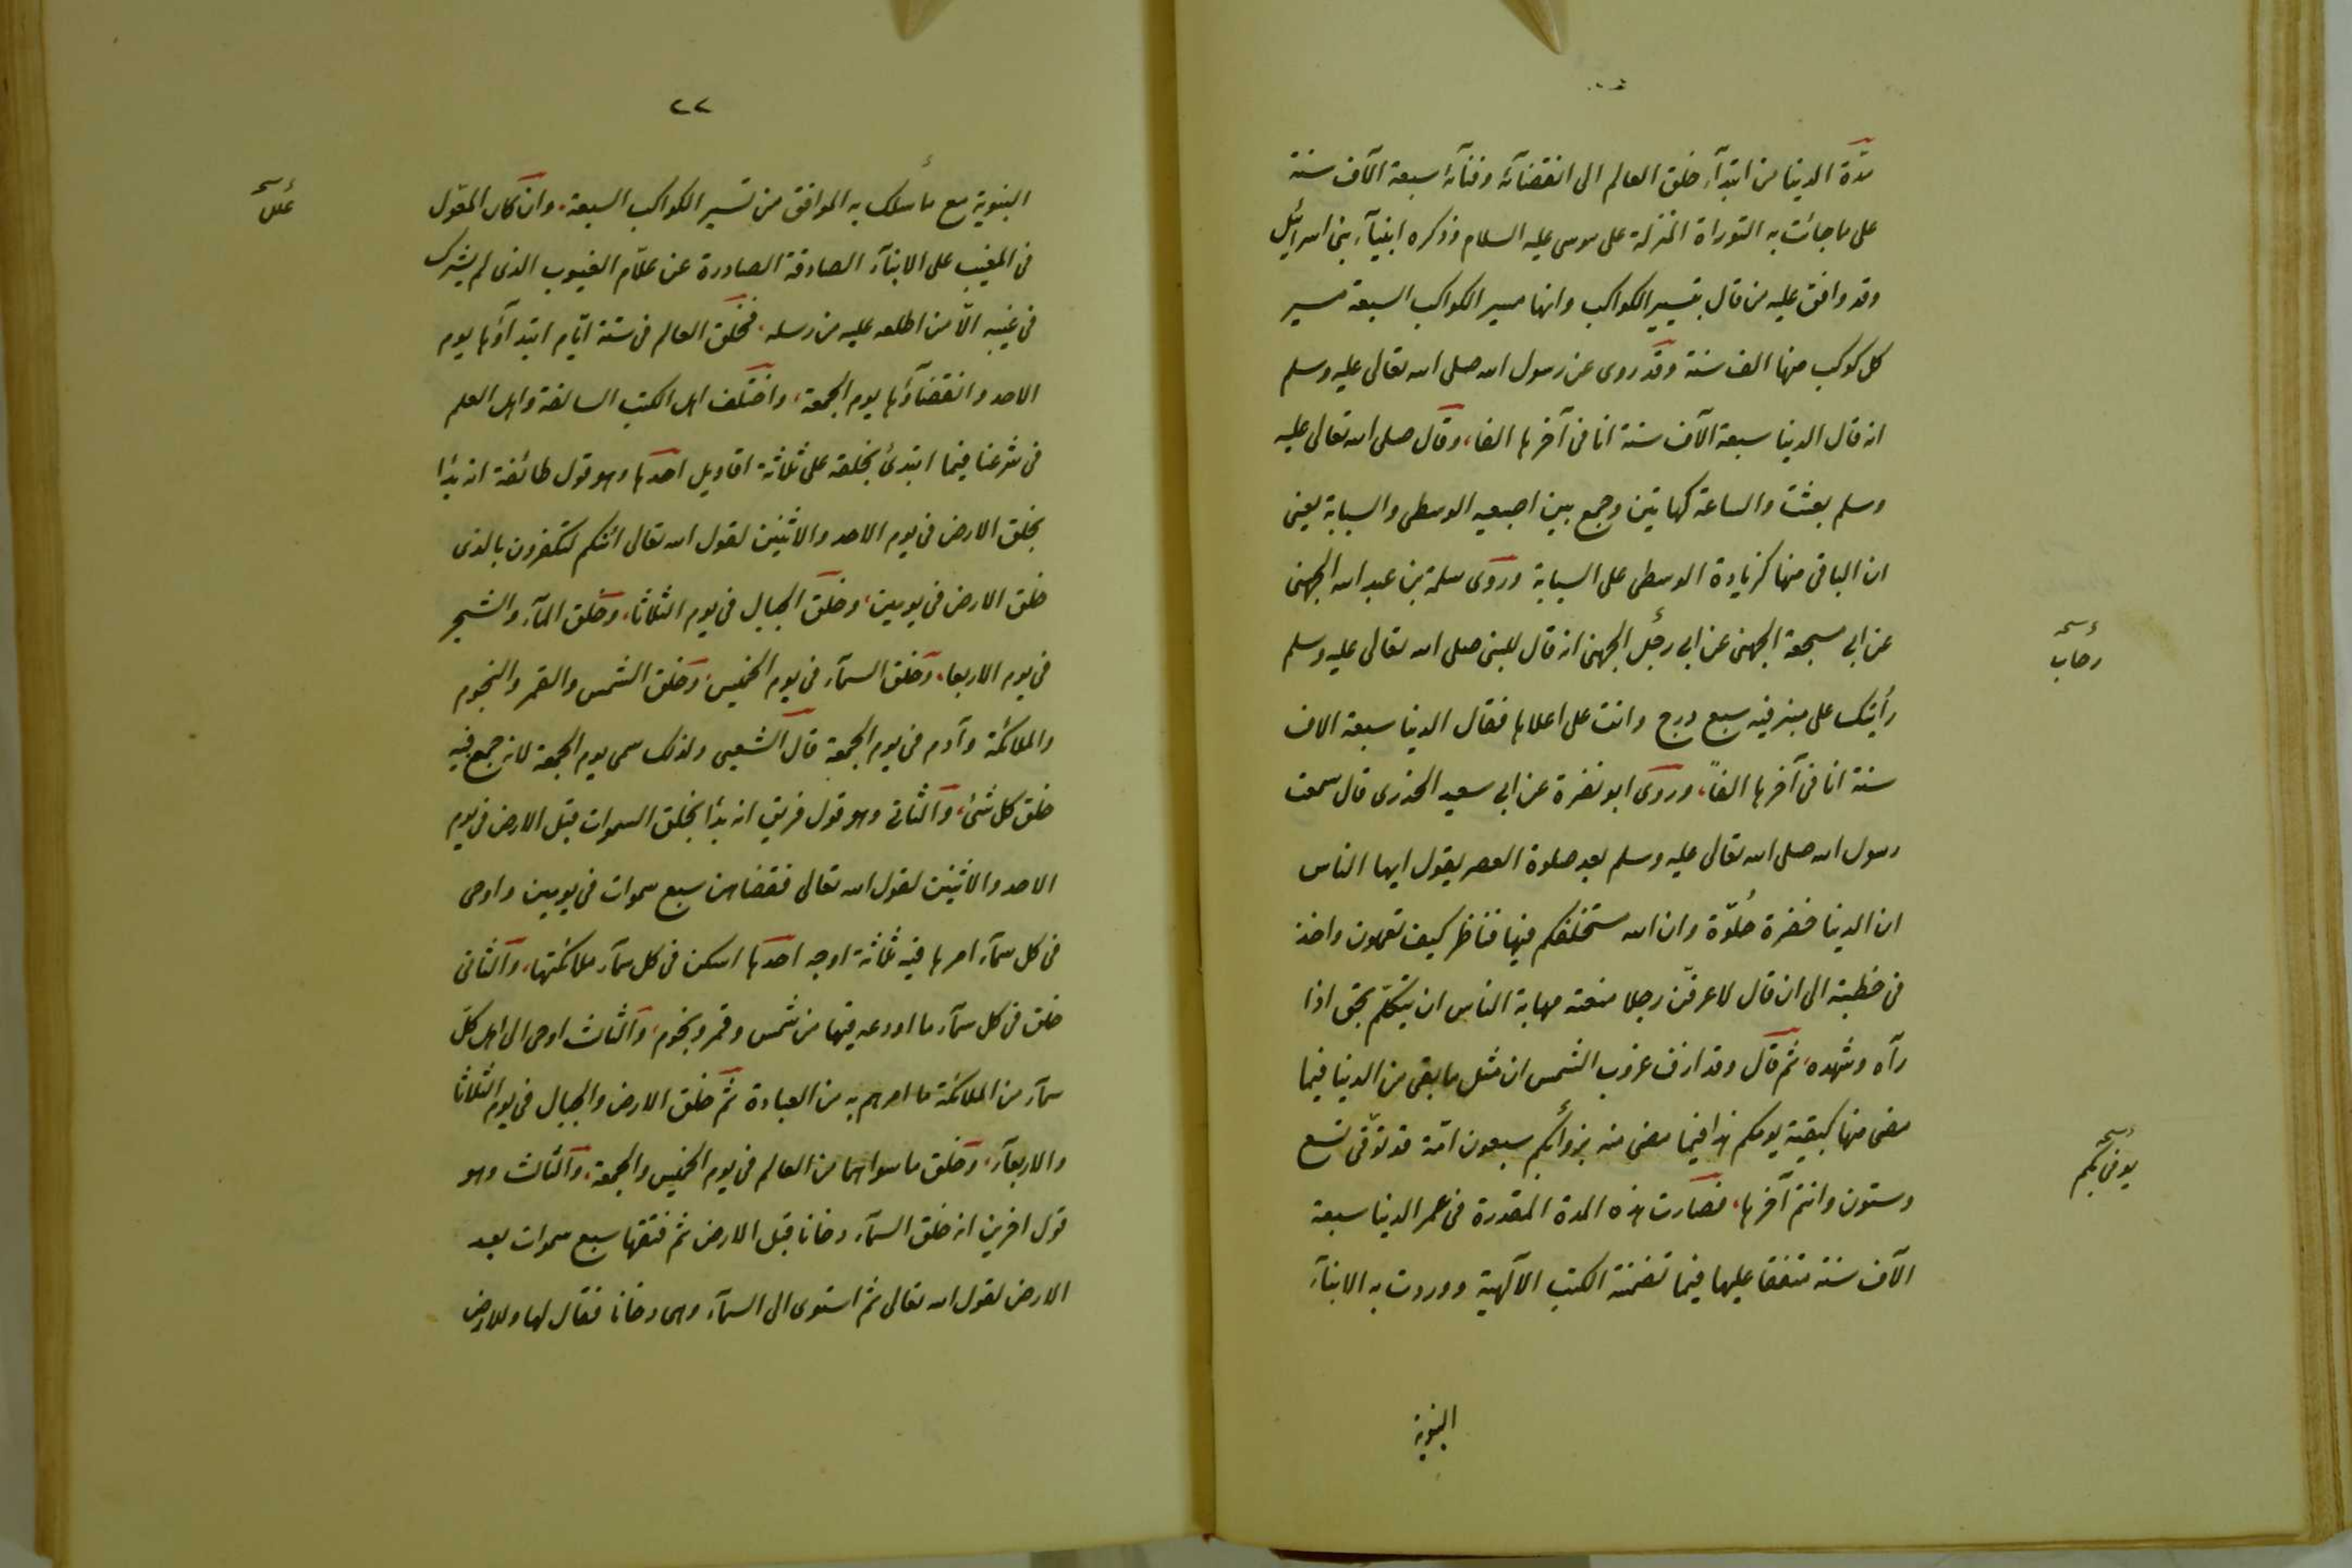 مدّة الدنيا من ابتدآء خلق العالم الى انقضآئه وفنآئه سبعة آلاف سنة
على ما جائت به التوراة المنزلة على موسى عليه السلام وذكره انبيآء بنى اسرائيل
وقد وافق عليه من قال بتسيير الكواكب وانها مسير الكواكب السبعة مسير
كل كوكب منها الف سنة وقد روى عن رسول الله صلى الله تعالى عليه وسلم
انه قال الدنيا سبعة آلاف سنة انا فى آخرها الفا، وقال صلى الله تعالى عليه
وسلم بعثت والساعة كهاتين وجمع بين اصبعيه الوسطى والسبابة يعنى
ان الباقى منها كزيادة الوسطى على السبابة وروى سلمة بن عبد الله الجهنى
عن ابي مسجعة الجهنى عن ابي رجل الجهنى انه قال للنبى صلى الله تعالى عليه وسلم
نسخه
رحاب
رأيتك على منبر فيه سبع درج وانت على اعلاها فقال الدنيا سبعة الاف
سنة انا فى آخرها الفاً، وروى ابو نضرة عن ابي سعيد الخذرى قال سمعت
رسول الله صلى الله تعالى عليه وسلم بعد صلوة العصر يقول ايها الناس
ان الدنيا خضرة حُلوّة وان الله مستخلفكم فيها فناظر كيف تعملون واخذ
فى خطبته الى ان قال لاعرفنّ رجلا منعته مهابة الناس ان يتكلّم بحق اذا
رآه وشهده، ثم قال وقد ازف غروب الشمس ان مثل ما بقى من الدنيا فيما
مضى منها كبقية يومكم هذا فيما مضى منه سبعون امّة قد توّفى تسع
نسخه
يوفى بكم
وستون وانتم آخرها، فصارت هذه المدة المقدرة فى عمر الدنيا سبعة
آلاف سنة متفقا عليها فيما تضمنته الكتب الآلهية ووردت به الانبآء
النبوية
٢٢
النبوية مع ما سلك به الموافق من تسيير الكواكب السبعة، وان كان المعّول
نسخه
فى المغيب على الانبآء الصادقة الصادرة عن علّام الغيوب الذى لم يشرك
فى غيبه الّا من اطلعه عليه من رسله، فخلق العالم فى ستة ايّام ابتدآؤها يوم
الاحد وانقضآؤها يوم الجمعة، واختلف اهل الكتب السالفة واهل العلم
فى شرعنا فيما ابتدئ بخلقه على ثلاثة اقاويل احدها وهو قول طائفة انه بدا
بخلق الارض فى يوم الاحد والاثنين لقول الله تعالى ائنكم لتكفرون بالذى
خلق الارض فى يومين، وخلق الجبال فى يوم الثلاثا، وخلق المآء والشجر
فى يوم الاربعا، وخلق السمآء فى يوم الخميس، وخلق الشمس والقمر والنجوم
والملائكة وآدم فى يوم الجمعة قال الشعبى ولذلك سمى يوم الجمعة لانه جمع فيه
خلق كل شئ، والثانى وهو قول فريق انه بدا بخلق السموات قبل الارض فى يوم
الاحد والاثنين لقول الله تعالى فقضاهن سبع سموات فى يومين واوحى
فى كل سمآء امرها فيه ثلاثة اوجه احدها اسكن فى كل سمآء ملائكتها، والثانى
خلق فى كل سمآء ما اودعه فيها من شمس وقمر ونجوم، والثالث اوحى الى اهل كلّ
سمآء من الملائكة ما امرهم به من العبادة ثم خلق الارض والجبال فى يوم الثلاثا
والاربعآء، وخلق ما سواهما من العالم فى يوم الخميس والجمعة، والثالث وهو
قول اخرين انه خلق السمآء دخانا قبل الارض ثم فتقها سبع سموات بعد
الارض لقول الله تعالى ثم استوى الى السمآء وهى دخانا فقال لها وللارض